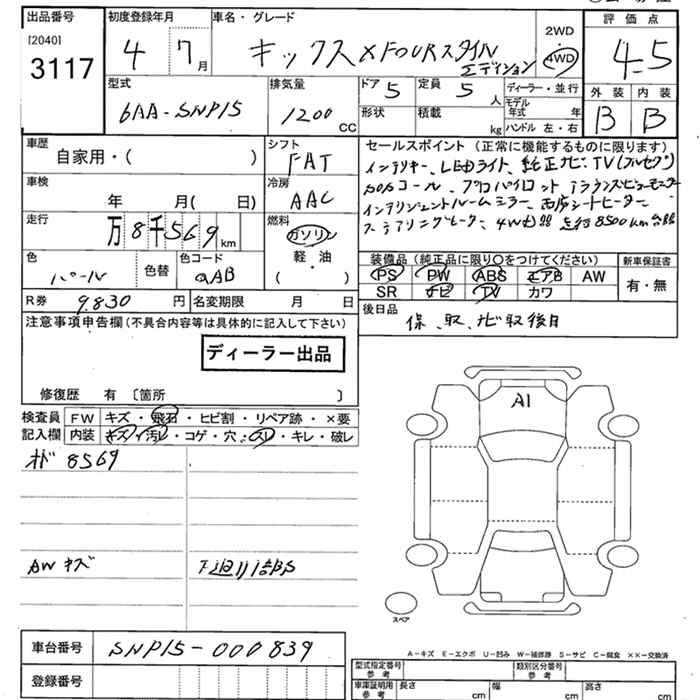 出品番号
[2040]
3117
初度登録年月
4 7月
車名・グレード
キックス XFOURスタイル
エディション
2WD
4WD
評価点
4.5
外装 内装
B B
型式
6AA-SNP15
排気量
1200 CC
ドア 5
定員 5 人
形状
積載 kg
ディーラー・並行
モデル年式 年
ハンドル 左・右
車歴
自家用・( )
シフト
FAT
車検
年 月( 日)
冷房
AAC
走行
万8千569km
燃料
ガソリン
軽・油
( )
色
パール
色替
色コード
QAB
R券 9,830 円
名変期限 月 日
セールスポイント(正常に機能するものに限ります)
インテリキー、LEDライト、純正ナビ、TV(フルセグ)
SOSコール、プロパイロット
インテリジェントルームミラー、シートヒーター
ステアリングヒーター、4WD 走行8500km台
装備品(純正品に限り○をつけてください)
PS PW ABS エアB AW
SR ナビ TV カワ
新車保証書
有・無
後日品
保、取、ナビ取後日
注意事項申告欄(不具合内容等は具体的に記入して下さい)
ディーラー出品
修復歴 有 〔箇所 〕
検査員記入欄
FW キズ・飛石・ヒビ割・リペア跡・×要
内装 キズ・汚レ・コゲ・穴・スレ・キレ・破レ
オド 8569
AWキズ
下廻リ
A1
スペア
A-キズ E-エクボ U-凹み W-補修跡 S-サビ C-腐食 XX-交換済
車台番号 SNP15-000839
登録番号
型式指定番号
参考
類別区分番号
参考
車庫証明用
参考
長さ cm 幅 cm 高さ cm